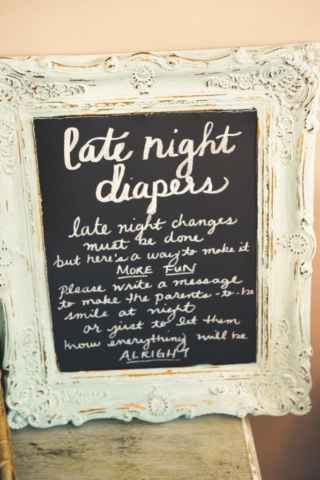 late night
diapers
late night changes
must be done
but here's a way to make it
MORE FUN
Please write a message
to make the parents-to-be
smile at night
or just to let them
know everything will be
ALRIGHT